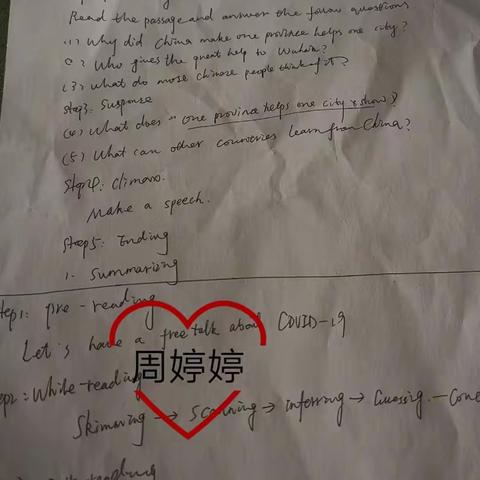 Read the passage and answer the follow questions
(1) Why did China make one province helps one city?
Who gives the great help to Wuhan?
(3) What do most Chinese people think of it?
Step3: Suspense
(4) What does "one province helps one city" show?
(5) What can other countries learn from China?
Step4: Climax.
Make a speech.
Step5: Ending
1. Summarizing
Step1: Pre-reading
Let's have a free talk about COVID-19
周婷婷
Step2: While-reading
Skimming → Scanning → inferring → Guessing